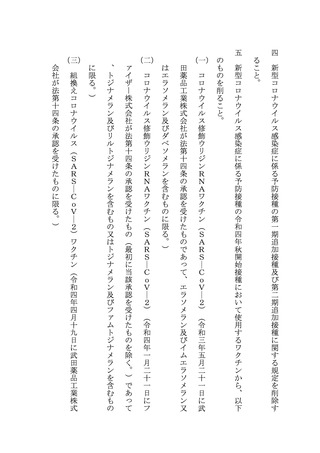 四　新型コロナウイルス感染症に係る予防接種の第一期追加接種及び第二期追加接種に関する規定を削除す
ること。
五　新型コロナウイルス感染症に係る予防接種の令和四年秋開始接種において使用するワクチンから、以下
のものを削ること。
（一）　コロナウイルス修飾ウリジンＲＮＡワクチン（ＳＡＲＳ―ＣｏＶ―２）（令和三年五月二十一日に武
田薬品工業株式会社が法第十四条の承認を受けたものであって、エラソメラン及びイムエラソメラン又
はエラソメラン及びダベソメランを含むものに限る。）
（二）　コロナウイルス修飾ウリジンＲＮＡワクチン（ＳＡＲＳ―ＣｏＶ―２）（令和四年一月二十一日にフ
ァイザー株式会社が法第十四条の承認を受けたもの（最初に当該承認を受けたものを除く。）であって
、トジナメラン及びリルトジナメランを含むもの又はトジナメラン及びファムトジナメランを含むもの
に限る。）
（三）　組換えコロナウイルス（ＳＡＲＳ―ＣｏＶ―２）ワクチン（令和四年四月十九日に武田薬品工業株式
会社が法第十四条の承認を受けたものに限る。）